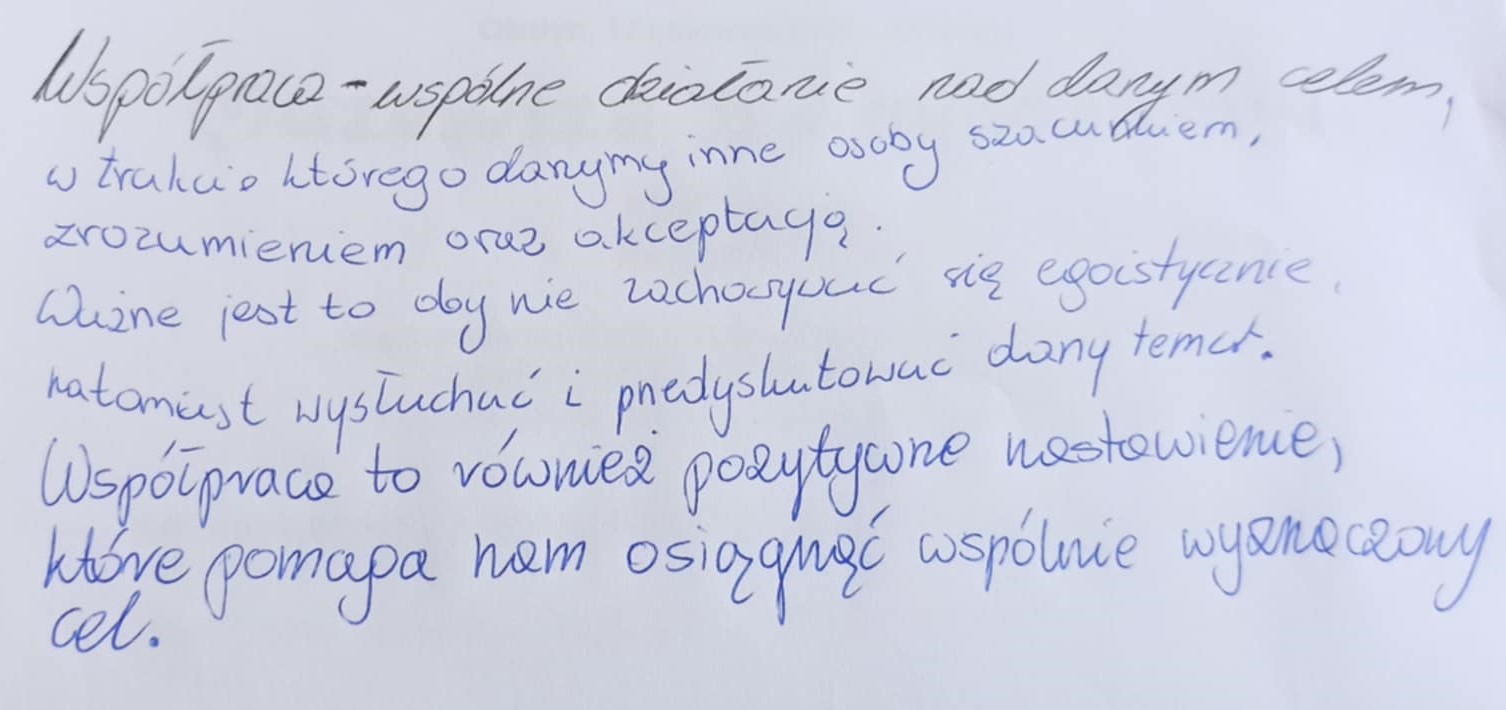 Współpraca - wspólne działanie nad danym celem,
w trakcie którego danymy inne osoby szacunkiem,
zrozumieniem oraz akceptacją.
Ważne jest to aby nie zachowywać się egoistycznie,
natomiast wysłuchać i przedyskutować dany temat.
Współpraca to również pozytywne nastawienie,
które pomaga nam osiągnąć wspólnie wyznaczony
cel.